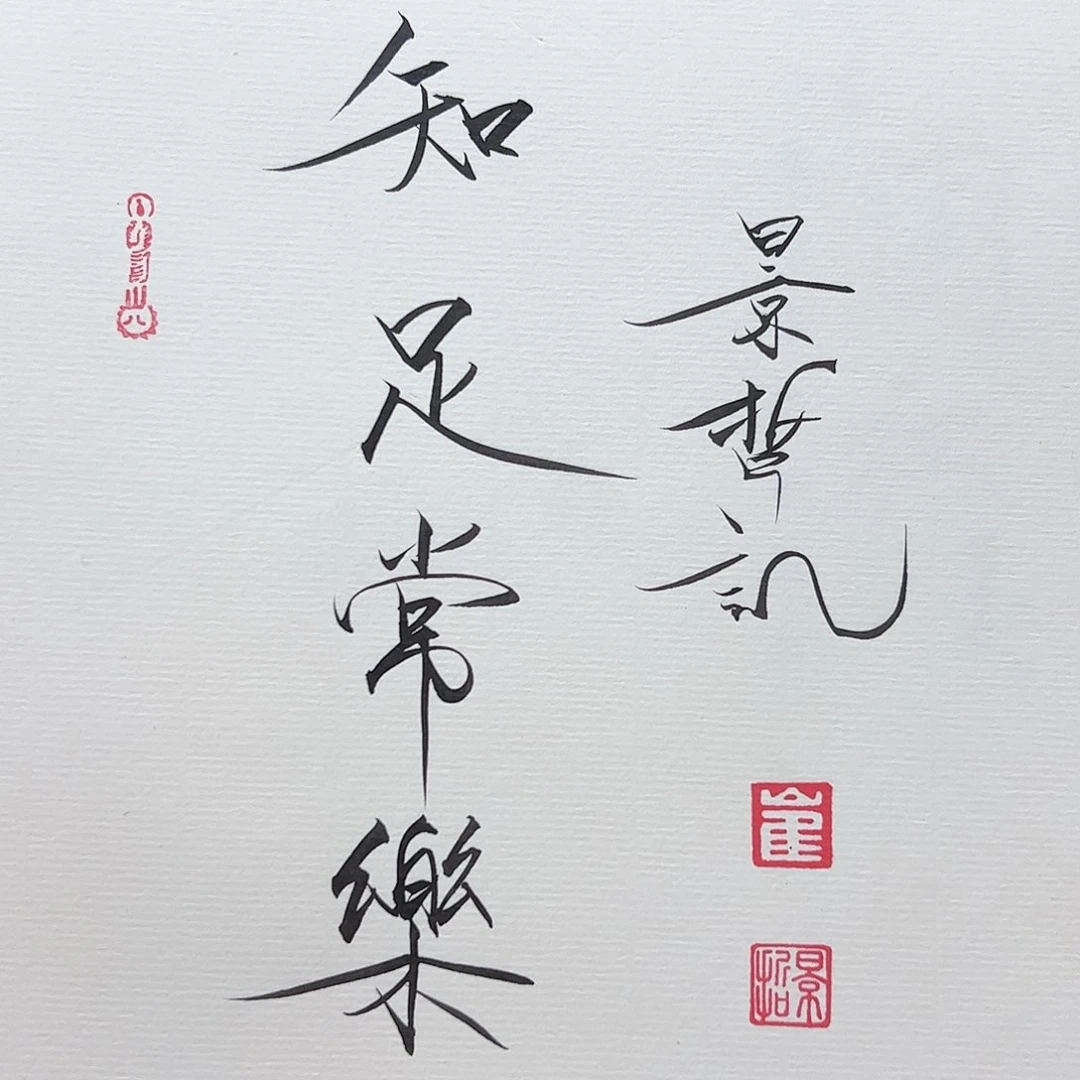 知足常樂
景哲記
崔
景哲